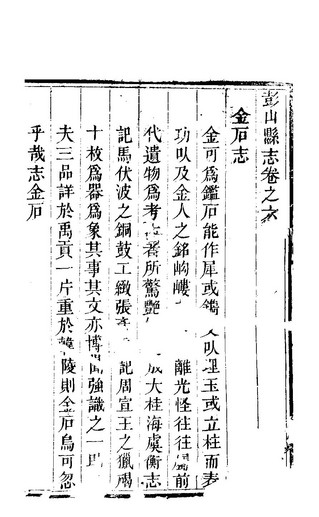 彭山縣志卷之六
金石志
金可爲鑑石能作犀或鑄 以埋玉或立柱而表
功以及金人之銘岣嶁 離光怪往往爲前
代遺物爲考 者所驚艷 放大桂海虞衡志
記馬伏波之銅鼓工緻張 記周宣王之獵碣
十枚爲器爲象其事其文亦博聞強識之一
夫三品詳於禹貢一片重於韓陵則金石烏可忽
乎哉志金石